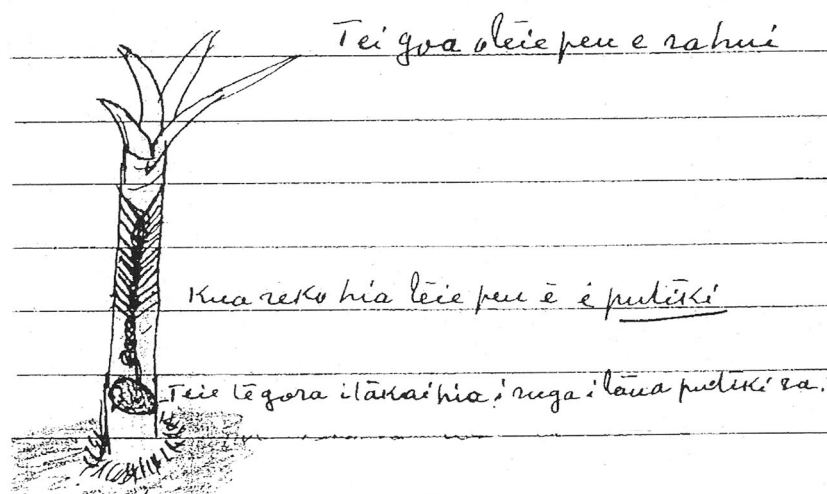 Tei goa o tēie peu e rahui
Kua reko hia tēie peu ē ē putiki
Teie tēgora i tākai hia i ruga i tāua putiki ra.